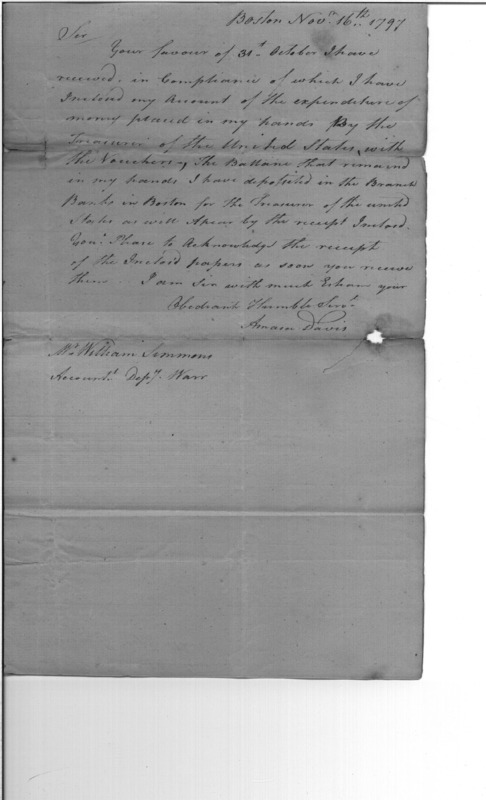 Boston Novr. 16th 1797
Sir
Your favour of 31st October I have
received, in Compliance of which I have
Inclosd my Account of the expenditure of
money placed in my hands By the
Treasurer of the United States, with
the Vouchers, The Ballanc that remaind
in my hands I have deposited in the Branch
Banks in Boston for the Treasurer of the united
States as will Apear by the receipt Inclosd.
Please to Acknowledge the receipt
of the Inclosd papers as soon you receive
them I am Sir with much Esteem your
Obediant Humble Servt.
Amasa Davis
Mr. William Simmons
Accountt. Dept. Warr